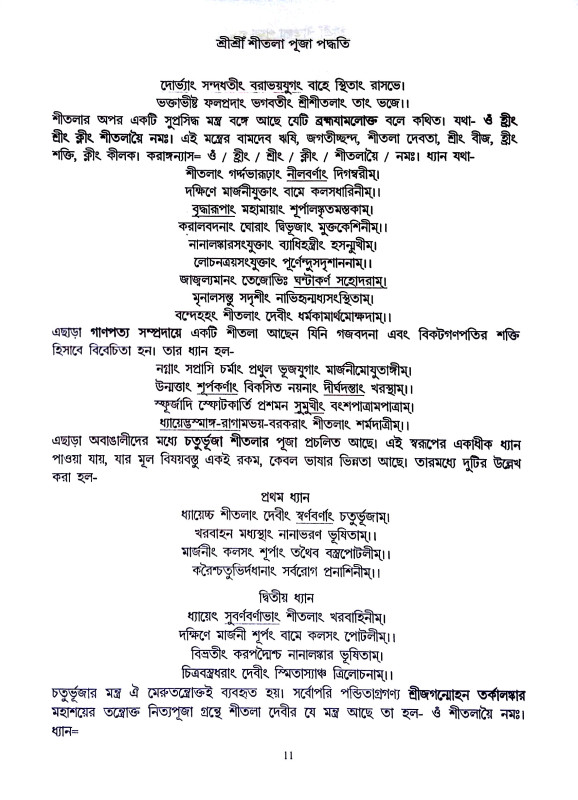 শ্রীশ্রী শীতলা পূজা পদ্ধতি
দোর্ভ্যাং সন্দধতীং বরাভয়যুগং বাহে স্থিতাং রাসভে।
ভক্তাভীষ্ট ফলপ্রদাং ভগবতীং শ্রীশীতলাং তাং ভজে।।
শীতলার অপর একটি সুপ্রসিদ্ধ মন্ত্র বঙ্গে আছে যেটি ব্রহ্মযামলোক্ত বলে কথিত। যথা- ওঁ হ্রীং
শ্রীং ক্লীং শীতলায়ৈ নমঃ। এই মন্ত্রের বামদেব ঋষি, জগতীচ্ছন্দ, শীতলা দেবতা, শ্রীং বীজ, হ্রীং
শক্তি, ক্লীং কীলক। করাঙ্গন্যাস= ওঁ / হ্রীং / শ্রীং / ক্লীং / শীতলায়ৈ / নমঃ। ধ্যান যথা-
শীতলাং গর্দ্দভারূঢ়াং নীলবর্ণাং দিগম্বরীম্।
দক্ষিণে মার্জনীযুক্তাং বামে কলসধারিনীম্।।
বৃদ্ধারূপাং মহামায়াং শূর্পালঙ্কৃতমস্তকাম্।
করালবদনাং ঘোরাং দ্বিভূজাং মুক্তকেশিনীম্।।
নানালঙ্কারসংযুক্তাং ব্যাধিহন্ত্রীং হসন্মুখীম্।
লোচনত্রয়সংযুক্তাং পূর্ণেন্দুসদৃশাননাম্।।
জাজ্বল্যমানং তেজোভিঃ ঘন্টাকর্ণ সহোদরাম্।
মৃনালসন্তু সদৃশীং নাভিহৃন্মধ্যসংস্থিতাম্।
বন্দেহহং শীতলাং দেবীং ধর্মকামার্থমোক্ষদাম্।।
এছাড়া গাণপত্য সম্প্রদায়ে একটি শীতলা আছেন যিনি গজবদনা এবং বিকটগণপতির শক্তি
হিসাবে বিবেচিতা হন। তার ধ্যান হল-
নগ্নাং সপ্রাসি চর্মাং প্রথুল ভূজযুগাং মার্জনীমোযুতাঙ্গীম্।
উন্মত্তাং শূর্পকর্ণাং বিকসিত নয়নাং দীর্ঘদন্তাং খরস্থাম্।।
স্ফূর্জাদি স্ফোটকার্তি প্রশমন সুমুখীং বংশপাত্রামপাত্রাম্।
ধ্যায়েদ্ভস্মাঙ্গ-রাগামভয়-বরকরাং শীতলাং শর্মদাত্রীম্।।
এছাড়া অবাঙালীদের মধ্যে চতুর্ভূজা শীতলার পূজা প্রচলিত আছে। এই স্বরূপের একাধীক ধ্যান
পাওয়া যায়, যার মূল বিষয়বস্তু একই রকম, কেবল ভাষার ভিন্নতা আছে। তারমধ্যে দুটির উল্লেখ
করা হল-
প্রথম ধ্যান
ধ্যায়েচ্চ শীতলাং দেবীং স্বর্ণবর্ণাং চতুর্ভূজাম্।
খরবাহন মধ্যস্থাং নানাভরণ ভূষিতাম্।।
মার্জনীং কলসং শূর্পাং তথৈব বস্ত্রপোটলীম্।
করৈশ্চতুভির্দধানাং সর্বরোগ প্রনাশিনীম্।।
দ্বিতীয় ধ্যান
ধ্যায়েৎ সুবর্ণবর্ণাভাং শীতলাং খরবাহিনীম্।
দক্ষিণে মার্জনী শূর্পং বামে কলসং পোটলীম্।।
বিভ্রতীং করপদ্মৈশ্চ নানালঙ্কার ভূষিতাম্।
চিত্রবস্ত্রধরাং দেবীং স্মিতাস্যাঞ্চ ত্রিলোচনাম্।।
চতুর্ভূজার মন্ত্র ঐ মেরুতন্ত্রোক্তই ব্যবহৃত হয়। সর্বোপরি পন্ডিতাগ্রগণ্য শ্রীজগন্মোহন তর্কালঙ্কার
মহাশয়ের তন্ত্রোক্ত নিত্যপূজা গ্রন্থে শীতলা দেবীর যে মন্ত্র আছে তা হল- ওঁ শীতলায়ৈ নমঃ।
ধ্যান=
11